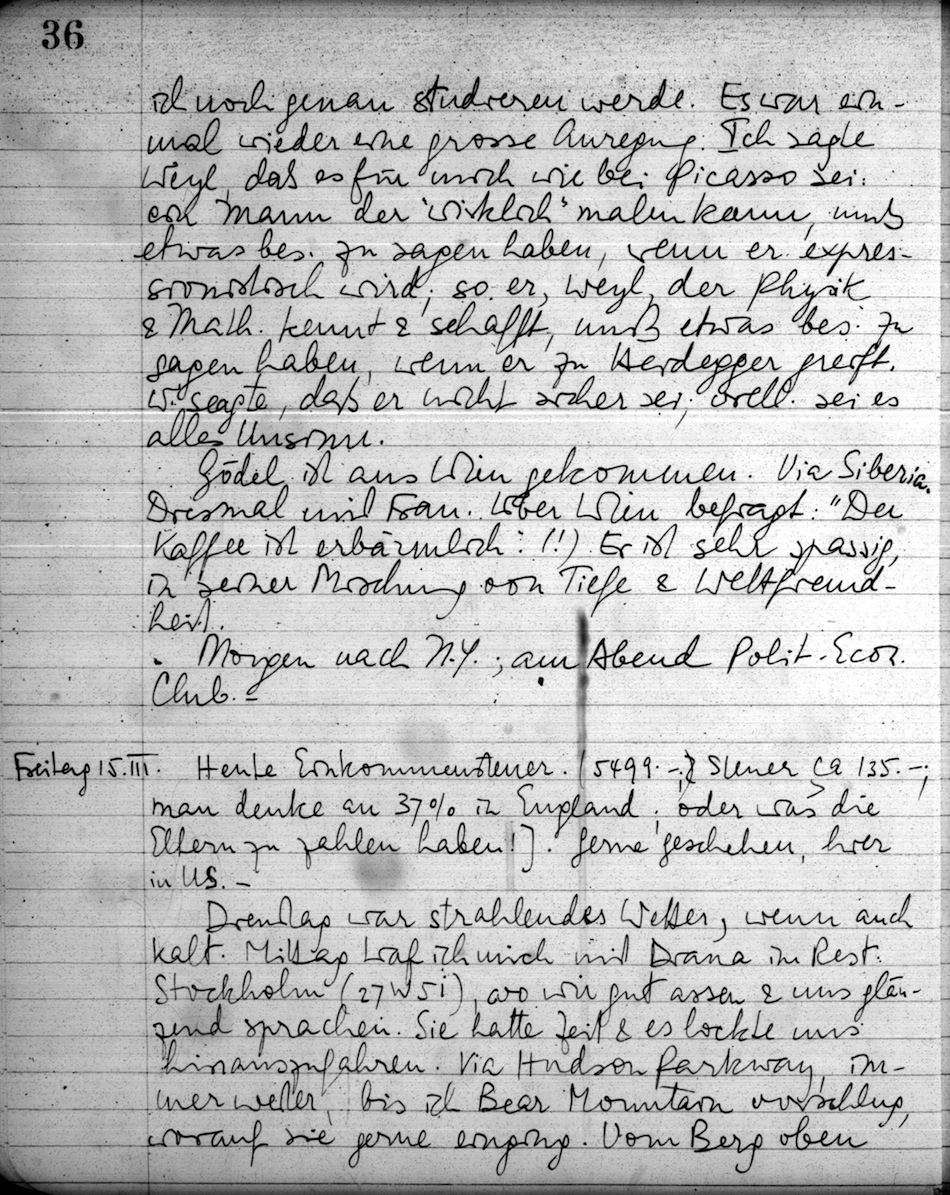 36
ich noch genau studieren werde. Es war ein-
mal wieder eine grosse Anregung. Ich sagte
Weyl, daß es für mich wie bei Picasso sei:
ein Mann der "wirklich" malen kann, muß
etwas bes. zu sagen haben, wenn er expres-
sionistisch wird; so er, Weyl, der Physik
& Math. kennt & schafft, muß etwas bes. zu
sagen haben, wenn er zu Heidegger greift.
W. sagte, daß er nicht sicher sei; viell. sei es
alles Unsinn.
Gödel ist aus Wien gekommen. Via Siberia.
Diesmal mit Frau. Über Wien befragt: "Der
Kaffee ist erbärmlich" (!!) Er ist sehr spassig,
in seiner Mischung von Tiefe & Weltfremd-
heit.
Morgen nach N.Y.; am Abend Polit-Econ.
Club. –
Freitag 15.III. Heute Einkommensteuer. (5499.-; Steuer ca 135.-;
man denke an 37% in England; oder was die
Eltern zu zahlen haben!]. Gerne geschehen, hier
in US. –
Dienstag war strahlendes Wetter, wenn auch
kalt. Mittag traf ich mich mit Drana im Rest.
Stockholm (27 W 51), wo wir gut assen & uns glän-
zend sprachen. Sie hatte Zeit & es lockte uns
hinauszufahren. Via Hudson Parkway, im-
mer weiter, bis ich Bear Mountain vorschlug,
worauf sie gerne einging. Vom Berg oben